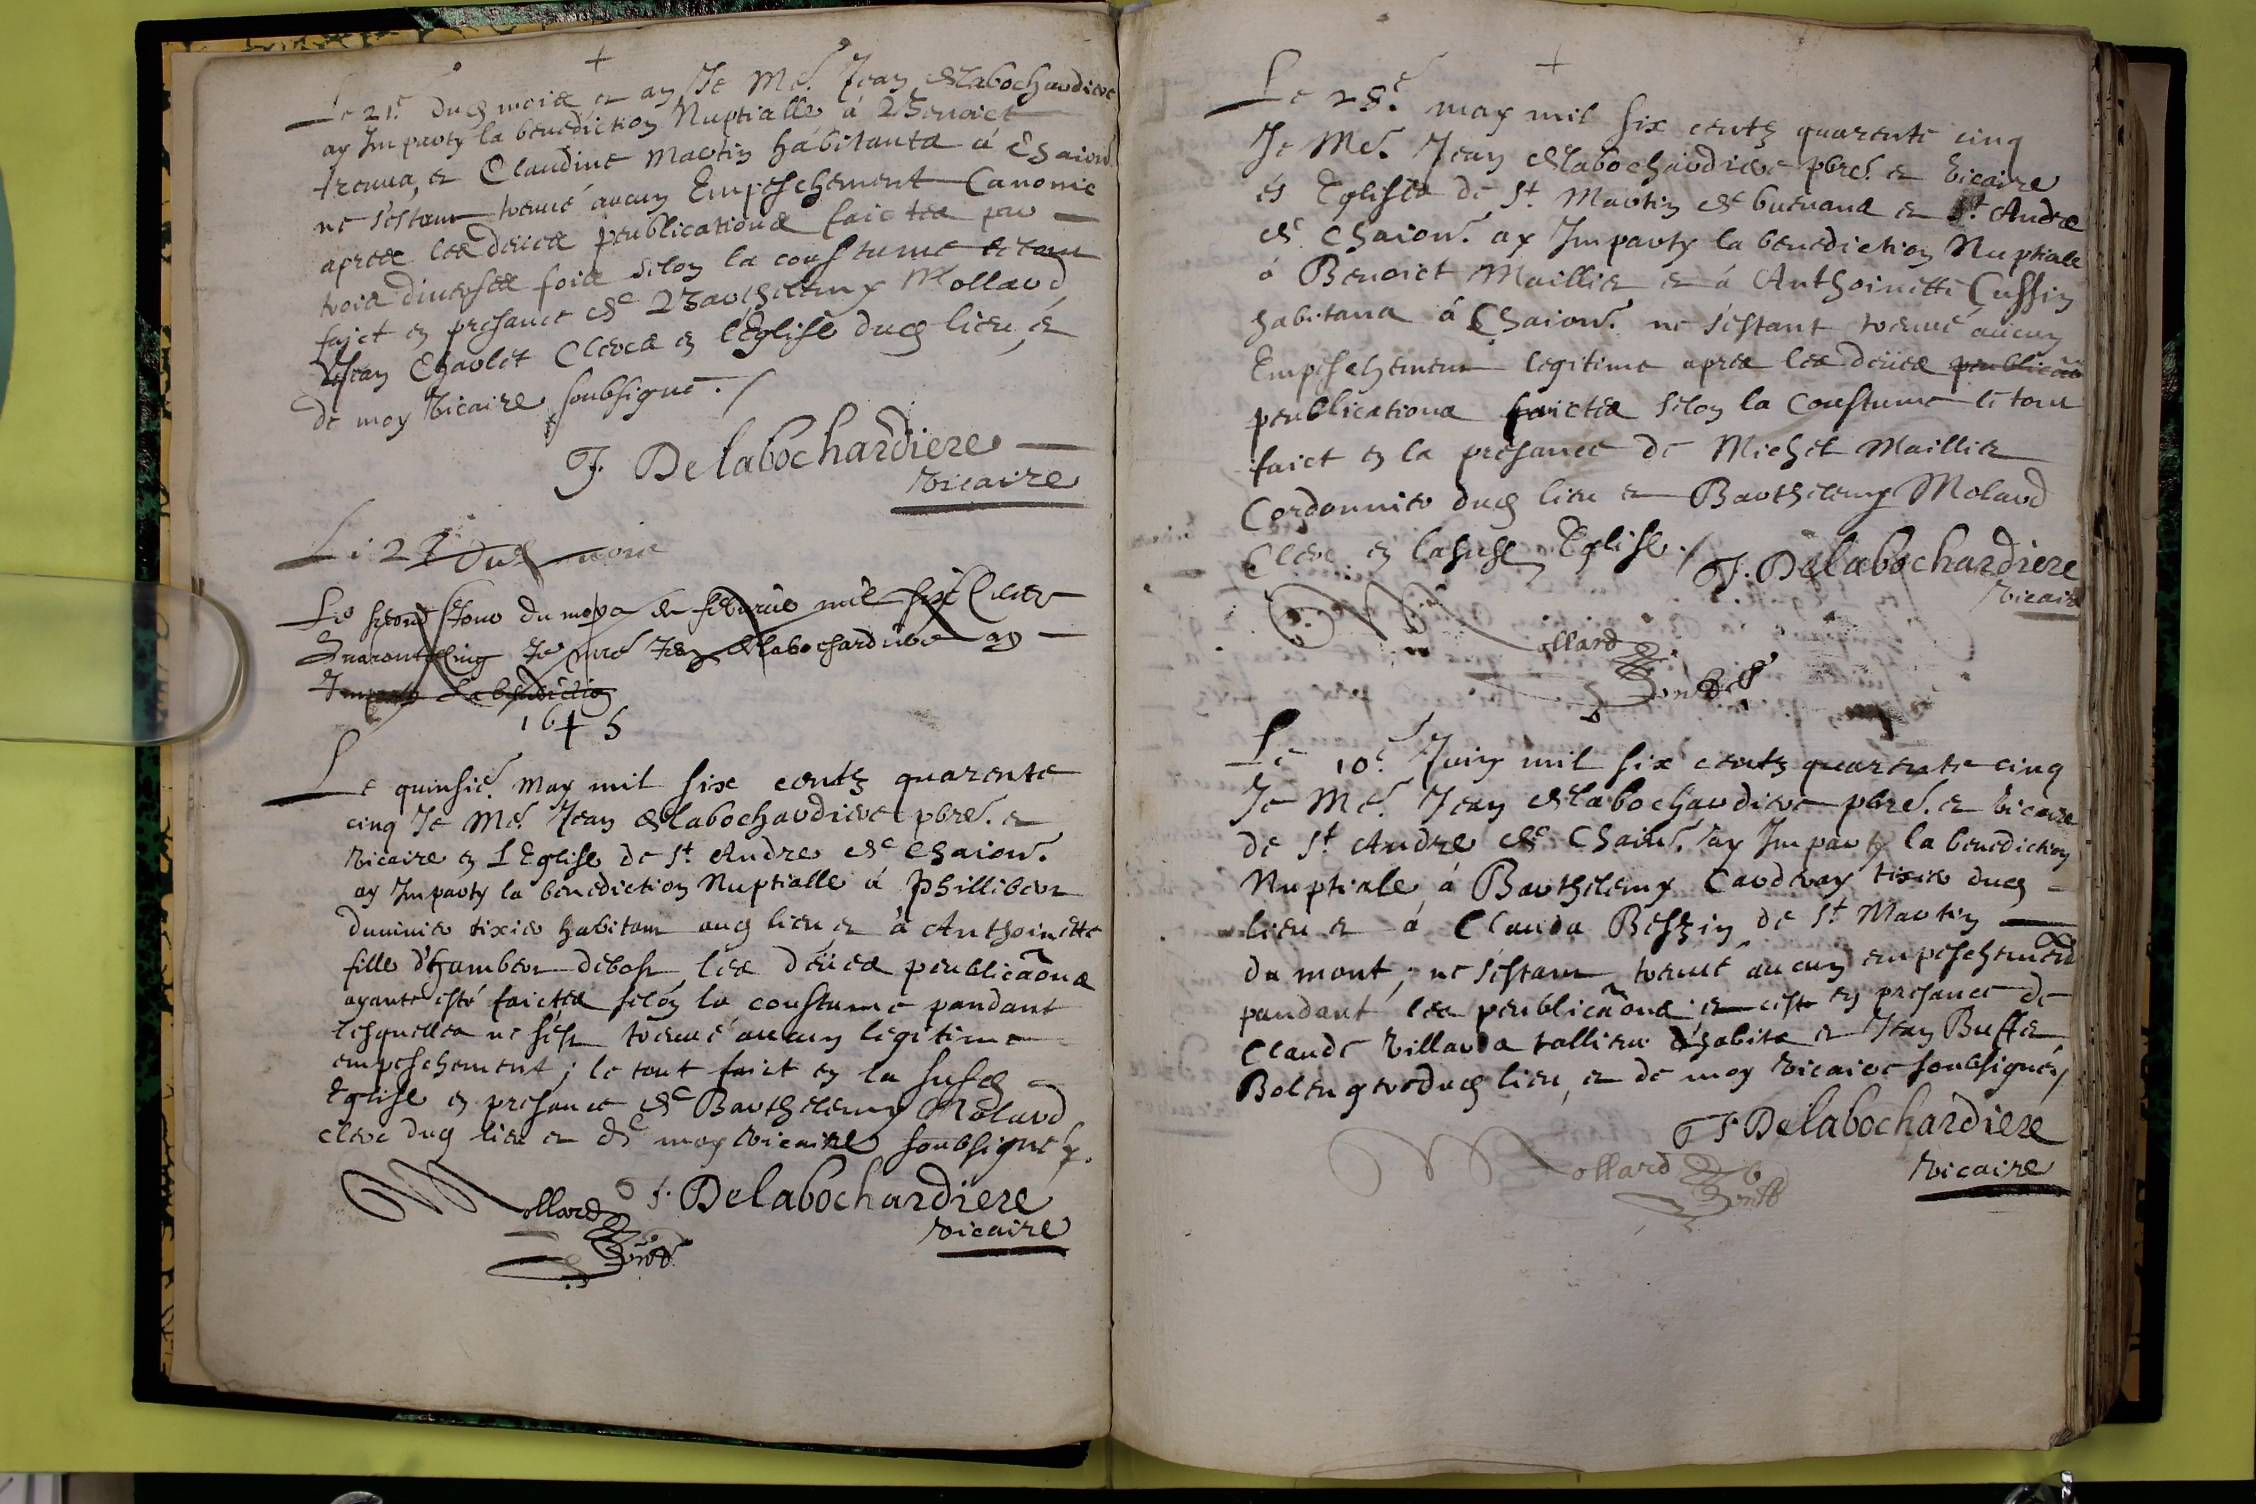 +
Le 21e. dud mois et an Je Me. Jean Delabochardiere
ay Imparty la benediction Nuptialle á Benoict
treuua, et Claudine Martin habitants á Chaiour.
ne s'estant treuué aucun Empeschement Canonic
apres les deües peublications faictes par
trois diuerses fois selon la coustume le tout
faict en presance de Barthelemy Mollard
Jean Charlet Clercs en l'Eglise dud lieu, et
de moy Vicaire soubsigné. /
J. Delabochardiere
Vicaire
Le 27 Dud mois
Le second Jour du moys de feburier mil six Cents
Quarente Cinq Je me Jean Delabochardiere ay
Imparty La benediction
1645
Le quinsie. May mil six centz quarente
cinq Je Me. Jean Delabochardiere pbre. et
Vicaire en L'Eglise de St. Andre de Chaiour.
ay Imparty la benediction Nuptialle á Phillibert
dunnier tixier habitant aud lieu et á Anthoinette
fille d'Humbert debost les deües peublicaõns
ayants esté faictes selon la coustume pandant
lesquelles ne s'est treuué aucun legitime
empeschement; le tout faict en la susd
Eglise en presance de Barthelemy Molard
clerc dud lieu et de moy Vicaire soubsigné.
Mollard J. Delabochardiere
Vicaire
+
Le 28e. may mil six centz quarente cinq
Je Me. Jean Delabochardiere pbre. et Vicaire
és Eglises de St. Martin de buenans et St. Andre
de Chaiour. ay Imparty la benediction Nuptiale
á Benoict Maillier et á Anthoinette Cussin
habitans á Chaiour. ne s'estant treuué aucun
Empeschement legitime apres les deües peublicaõ
peublications faictes selon la Coustume le tout
faict en la presance de Michel Maillier
Cordonnier dud lieu et Barthelemy Molard
Clerc en lasusd Eglise. / J. Delabochardiere
Vicaire
Mollard
Le 10e. Juin mil six centz quarente cinq
Je Me. Jean Delabochardiere pbre. et Vicaire
de St. Andre de Chaiour. ay Imparty la benediction
Nuptiale á Barthelemy Cardenay tixier dud
lieu et á Clauda Beszin de St. Martin
du mont; ne s'estant treuué aucun empeschement
pandant les peublicaõns et cest en presance de
Claude Villards tallieur d'habits et Jean Buffet
Bolenger dud lieu, et de moy Vicaire soubsigné,/
J. Delabochardiere
Mollard Vicaire